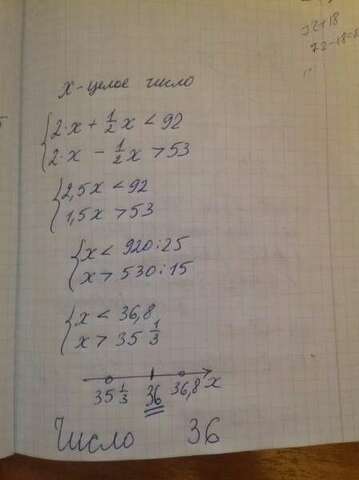 x - целое число
2·x + 1/2 x < 92
2·x - 1/2 x > 53
2,5x < 92
1,5x > 53
x < 920:25
x > 530:15
x < 36,8
x > 35 1/3
35 1/3 36 36,8 x
Число 36